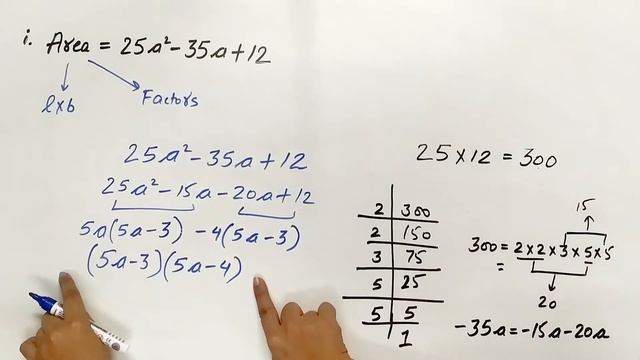 i. Area = 25a² - 35a + 12
l×b
Factors
25a² - 35a + 12
25a² - 15a - 20a + 12
5a(5a-3) -4(5a-3)
(5a-3)(5a-4)
25 × 12 = 300
2 | 300
2 | 150
3 | 75
5 | 25
5 | 5
1
15
300 = 2×2×3×5×5
=
20
-35a = -15a - 20a